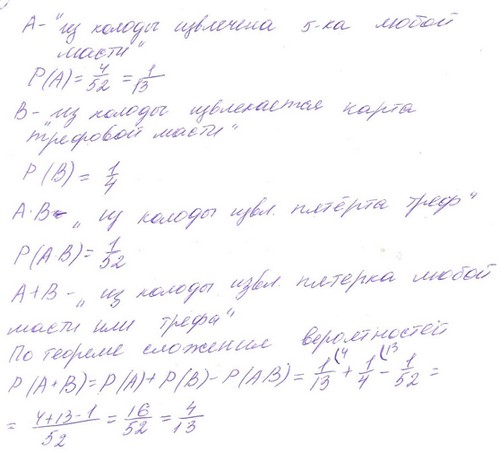 A- "из колоды извлечена 5-ка любой
масти"
P(A) = 4/52 = 1/13
B- „из колоды извлекается карта
трефовой масти"
P(B) = 1/4
A·B - „из колоды извл. пятёрка треф"
P(A·B) = 1/52
A+B - „из колоды извл. пятерка любой
масти или трефа"
По теореме сложения вероятностей
P(A+B) = P(A) + P(B) - P(AB) = 1/13 (4 + 1/4 (13 - 1/52 =
= 4+13-1/52 = 16/52 = 4/13